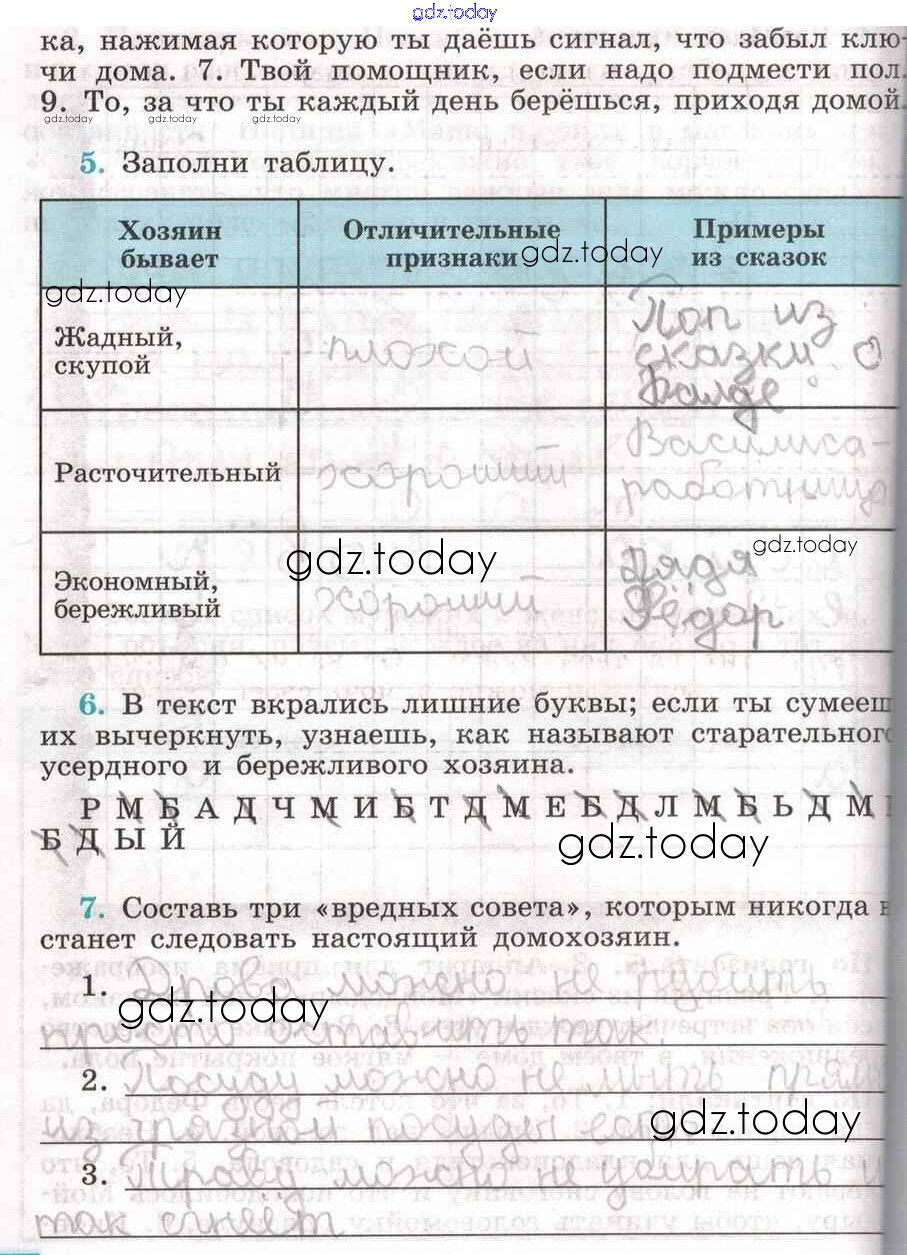 gdz.today
ка, нажимая которую ты даёшь сигнал, что забыл клю-
чи дома. 7. Твой помощник, если надо подмести пол.
9. То, за что ты каждый день берёшься, приходя домой.
gdz.today gdz.today gdz.today
5. Заполни таблицу.
Хозяин бывает
Отличительные признаки
Примеры из сказок
gdz.today
gdz.today
Жадный, скупой
плохой
Поп из
сказки о
Балде
Расточительный
хороший
Василиса-
работница
gdz.today
gdz.today
Экономный, бережливый
хороший
Дядя
Фёдор
6. В текст вкрались лишние буквы; если ты сумееш
их вычеркнуть, узнаешь, как называют старательного
усердного и бережливого хозяина.
Р М Б А Д Ч М И Б Т Д М Е Б Д Л М Б Ь Д М
Б Д Ы Й
gdz.today
7. Составь три «вредных совета», которым никогда н
станет следовать настоящий домохозяин.
1. Дрова можно не рубить
gdz.today
просто оставить так.
2. Посуду можно не мыть прям
gdz.today
из грязной посуды есть
3. Траву можно не убирать и
так сгнеет